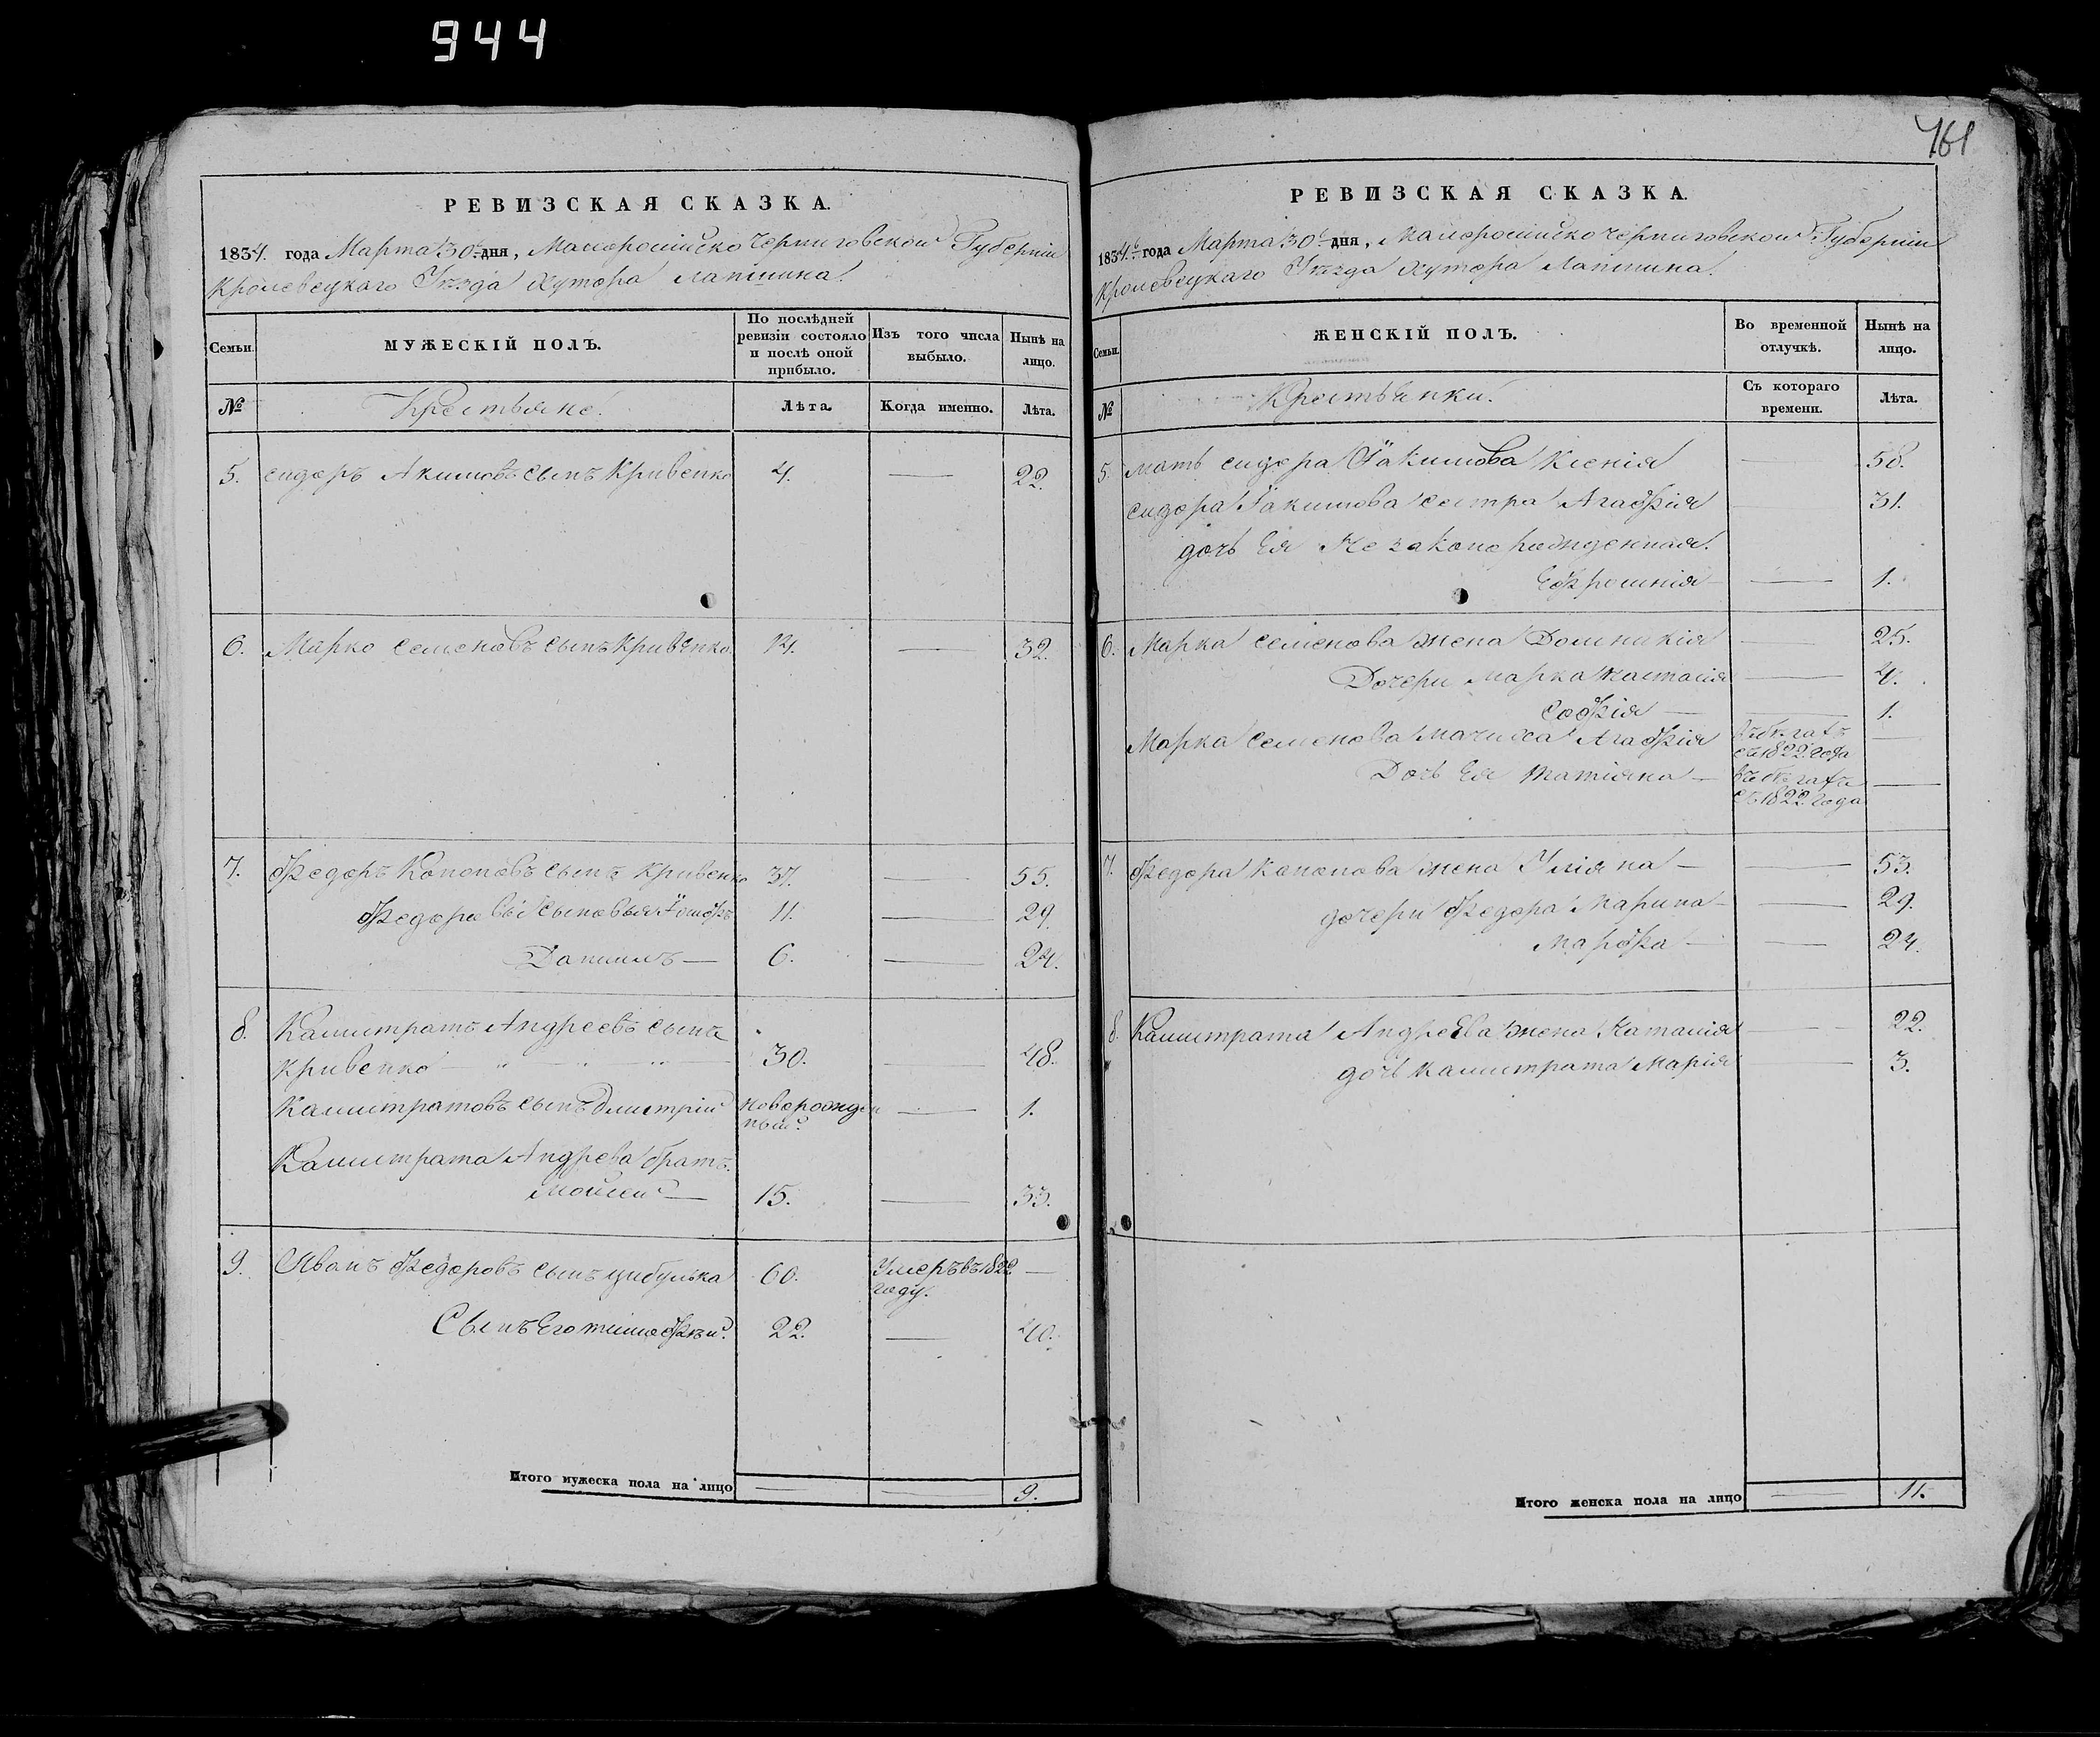 944
РЕВИЗСКАЯ СКАЗКА.
1834. года Марта 30го дня, Малоросійско Черниговской Губерніи
Кролевецкаго Уезда Хутора Лапшина.
Семьи.
МУЖЕСКІЙ ПОЛЪ.
По послѣдней ревизіи состояло и послѣ оной прибыло.
Изъ того числа выбыло.
Нынѣ на лицо.
№
Крестьяне.
Лѣта.
Когда именно.
Лѣта.
5. Сидоръ Акимовъ сынъ Кривенко 4. — 22.
6. Марко Семеновъ сынъ Кривенко. 14. — 32.
7. Федоръ Кононовъ сынъ Кривенко 37. — 55.
Федоровы сыновья Іосифъ 11. — 29.
Данилъ — 6. — 24.
8. Калистратъ Андреевъ сынъ
Кривенко — 30. — 48.
Калистратовъ сынъ Дмитрій новорожден — 1.
ный.
Калистрата Андрева братъ.
Мойсей — 15. — 33.
9. Иванъ Федоровъ сынъ Цибулька 60. Умеръ въ 1822 —
году.
Сынъ Его Тимофей. 22. — 40.
Итого мужеска пола на лицо — — 9.
161
РЕВИЗСКАЯ СКАЗКА.
1834.го года Марта 30го дня, Малоросійско Черниговской Губерніи
Кролевецкаго Уезда Хутора Лапшина.
Семьи.
ЖЕНСКІЙ ПОЛЪ.
Во временной отлучкѣ.
Нынѣ на лицо.
№
Крестьянки.
Съ котораго времени.
Лѣта.
5. Мать Сидора Іакимова Ксенія — 58.
Сидора Іакимова сестра Агафія — 31.
дочь Ея Незаконорожденная.
Ефросинія — 1.
6. Марка Семенова жена Домникія — 25.
Дочери Марка Настасія — 4.
Софія — — 1.
Марка Семенова мачиха Агафія въ бегахъ —
съ 1822. года
Дочь Ея Татіяна — въ бегахъ —
съ 1822 года
7. Федора Кононова жена Уліяна — — 53.
дочери Федора Марина — — 29.
Марфа — — 24.
8. Калистрата Андреева жена Наталія — 22.
дочь Калистрата Марія — 3.
Итого женска пола на лицо — 11.